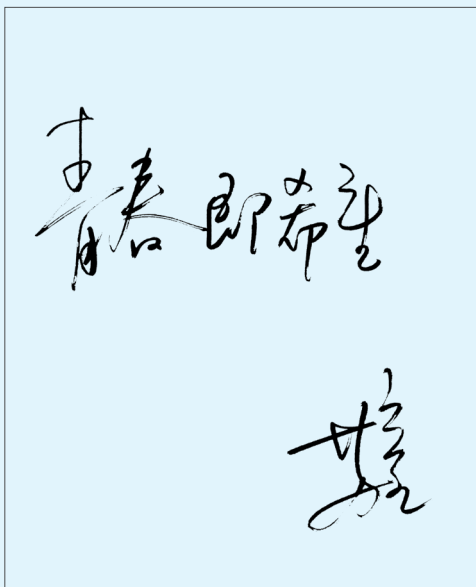 青春即希望